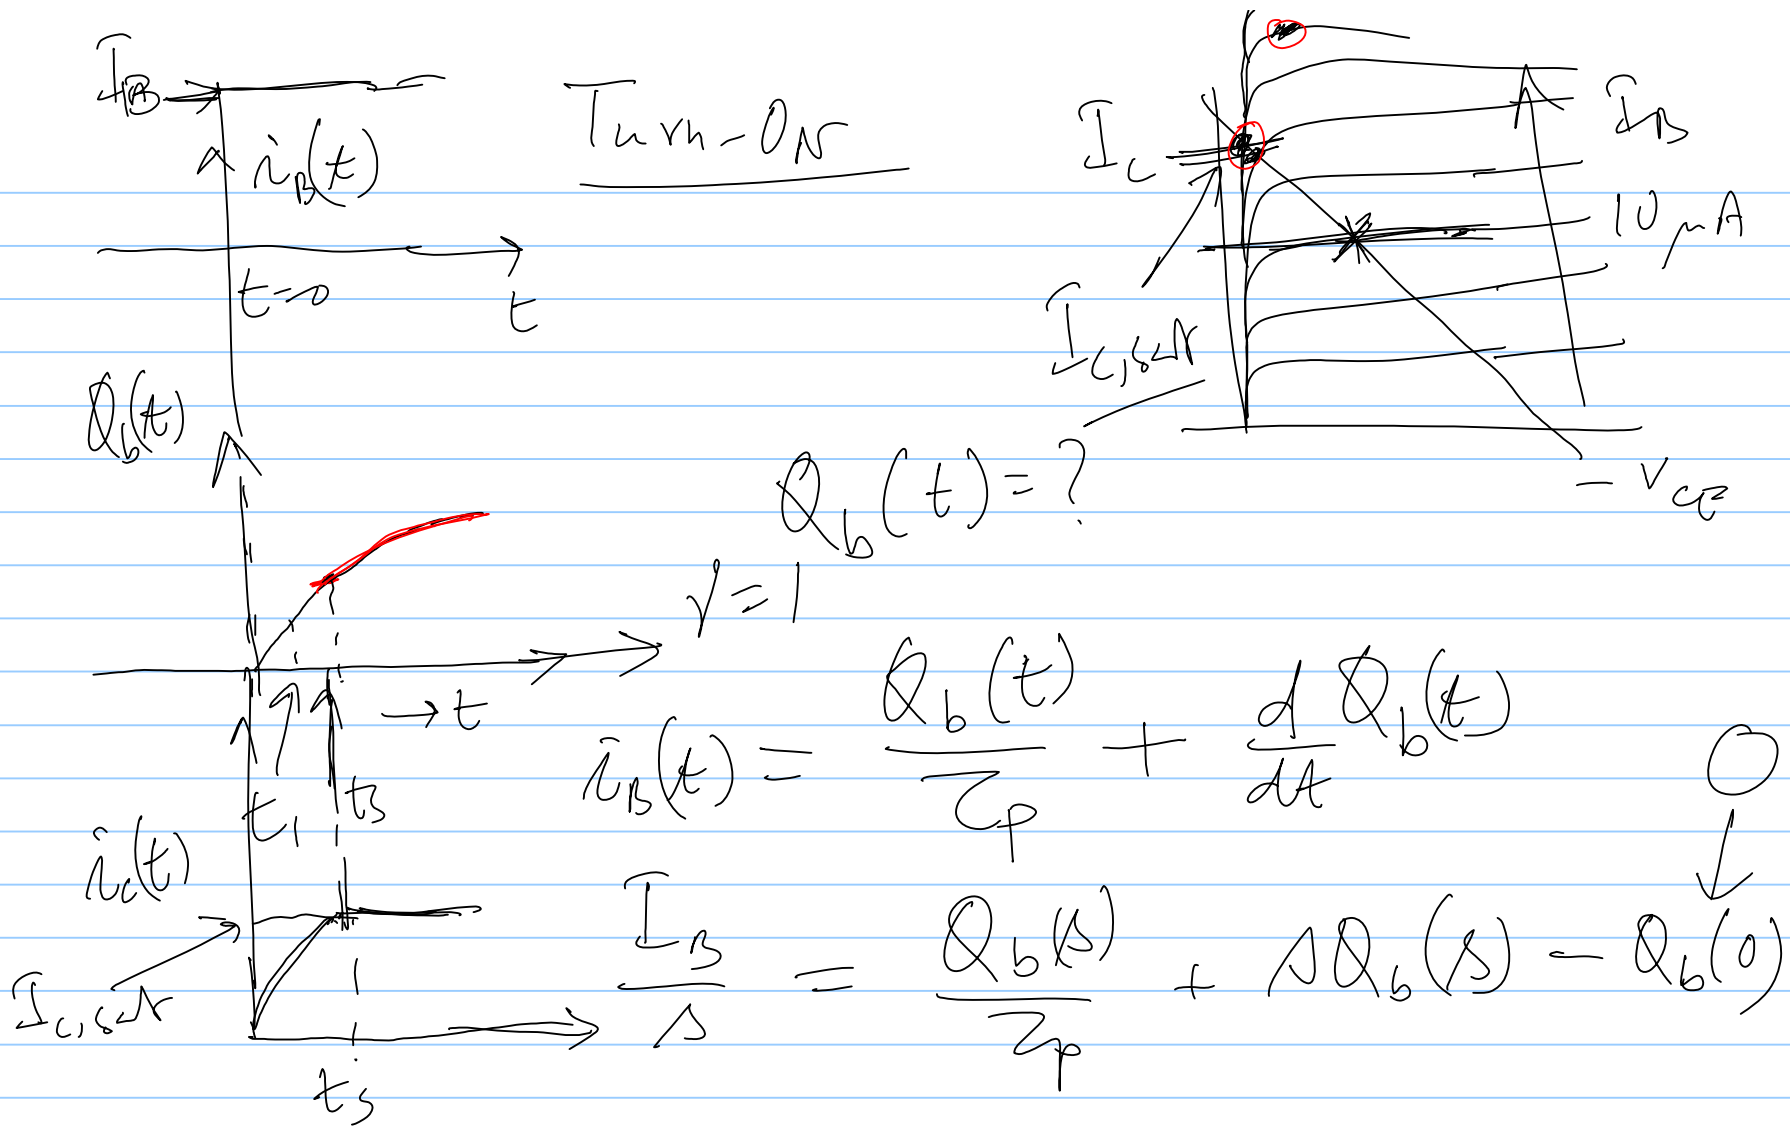 I_B
i_B(t)
t=0
t
Turn-ON
I_C
I_B
10 μA
I_C,sat
- V_CE
Q_b(t)
Q_b(t) = ?
γ = 1
→ t
t_1
t_s
i_B(t) = Q_b(t)/τ_p + d/dt Q_b(t)
i_c(t)
0
I_C,sat
I_B/s = Q_b(s)/τ_p + s Q_b(s) - Q_b(0)
t_s